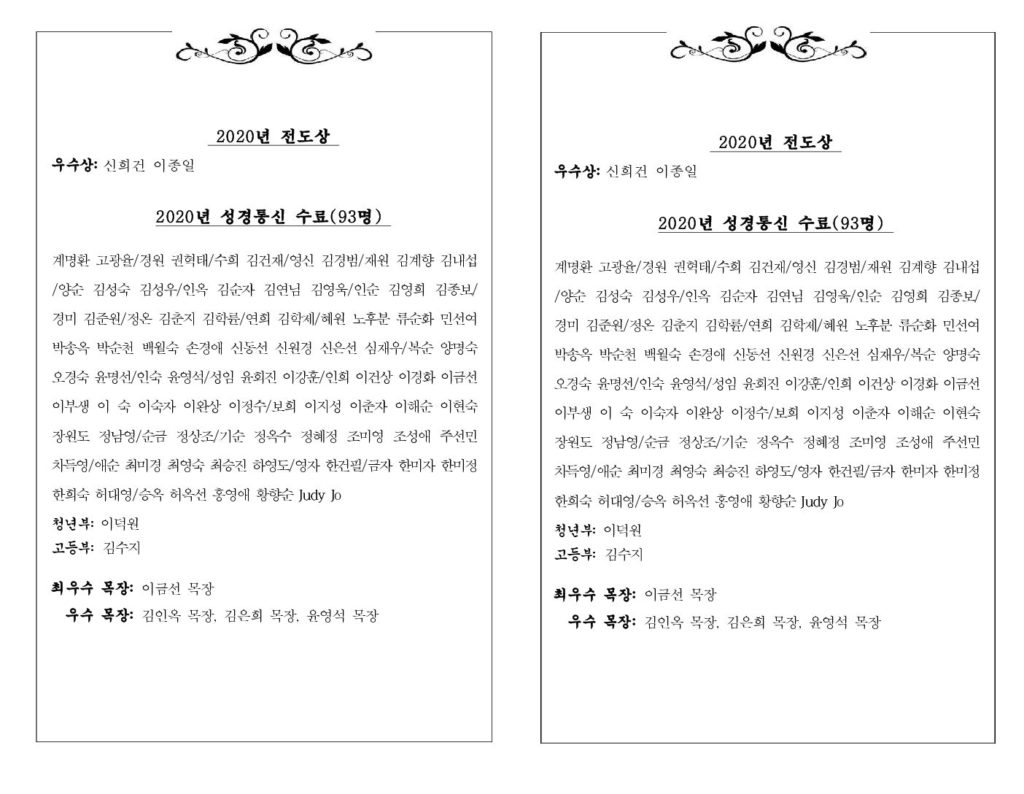 2020년 전도상
우수상: 신희건 이종일
2020년 성경통신 수료(93명)
계명환 고광율/경원 권혁태/수희 김건재/영신 김경범/재원 김계향 김내섭
/양순 김성숙 김성우/인옥 김순자 김연님 김영욱/인순 김영희 김종보/
경미 김준원/정온 김춘지 김학륜/연희 김학제/혜원 노후분 류순화 민선여
박송옥 박순천 백월숙 손경애 신동선 신원경 신은선 심재우/복순 양명숙
오경숙 윤명선/인숙 윤영석/성임 윤회진 이강훈/인희 이건상 이경화 이금선
이부생 이 숙 이숙자 이완상 이정수/보희 이지성 이춘자 이해순 이현숙
장원도 정남영/순금 정상조/기순 정옥수 정혜정 조미영 조성애 주선민
차득영/애순 최미경 최영숙 최승진 하영도/영자 한건필/금자 한미자 한미정
한희숙 허대영/승옥 허옥선 홍영애 황향순 Judy Jo
청년부: 이덕원
고등부: 김수지
최우수 목장: 이금선 목장
우수 목장: 김인옥 목장, 김은희 목장, 윤영석 목장
2020년 전도상
우수상: 신희건 이종일
2020년 성경통신 수료(93명)
계명환 고광율/경원 권혁태/수희 김건재/영신 김경범/재원 김계향 김내섭
/양순 김성숙 김성우/인옥 김순자 김연님 김영욱/인순 김영희 김종보/
경미 김준원/정온 김춘지 김학륜/연희 김학제/혜원 노후분 류순화 민선여
박송옥 박순천 백월숙 손경애 신동선 신원경 신은선 심재우/복순 양명숙
오경숙 윤명선/인숙 윤영석/성임 윤회진 이강훈/인희 이건상 이경화 이금선
이부생 이 숙 이숙자 이완상 이정수/보희 이지성 이춘자 이해순 이현숙
장원도 정남영/순금 정상조/기순 정옥수 정혜정 조미영 조성애 주선민
차득영/애순 최미경 최영숙 최승진 하영도/영자 한건필/금자 한미자 한미정
한희숙 허대영/승옥 허옥선 홍영애 황향순 Judy Jo
청년부: 이덕원
고등부: 김수지
최우수 목장: 이금선 목장
우수 목장: 김인옥 목장, 김은희 목장, 윤영석 목장